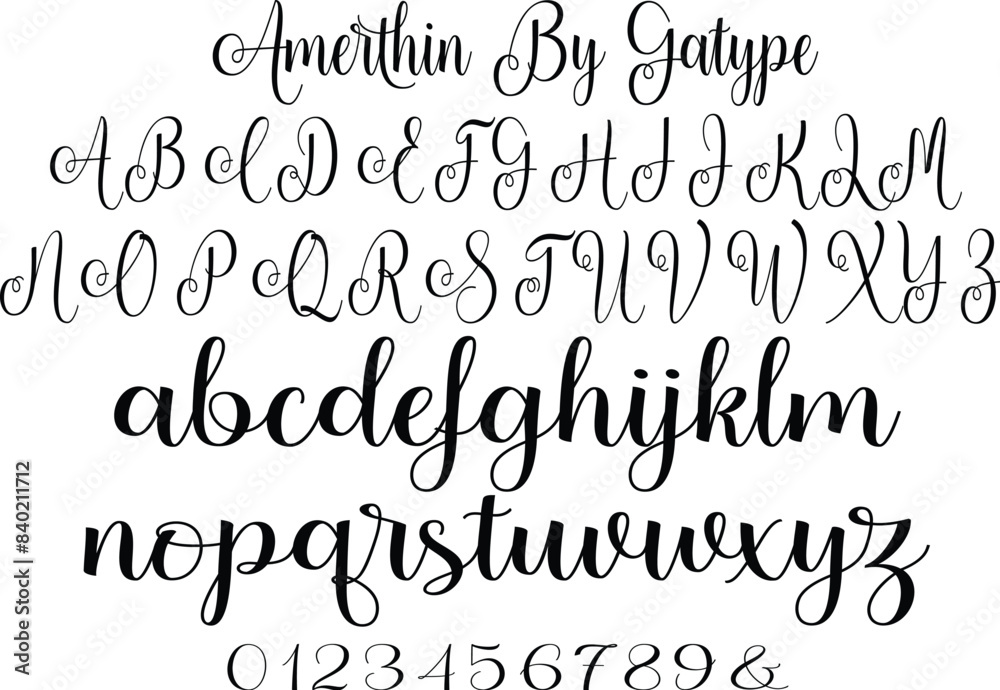 Amerthin By Gatype
A B C D E F G H I J K L M
N O P Q R S T U V W X Y Z
abcdefghijklm
nopqrstuvwxyz
0 1 2 3 4 5 6 7 8 9 &
Adobe Stock | #840211712